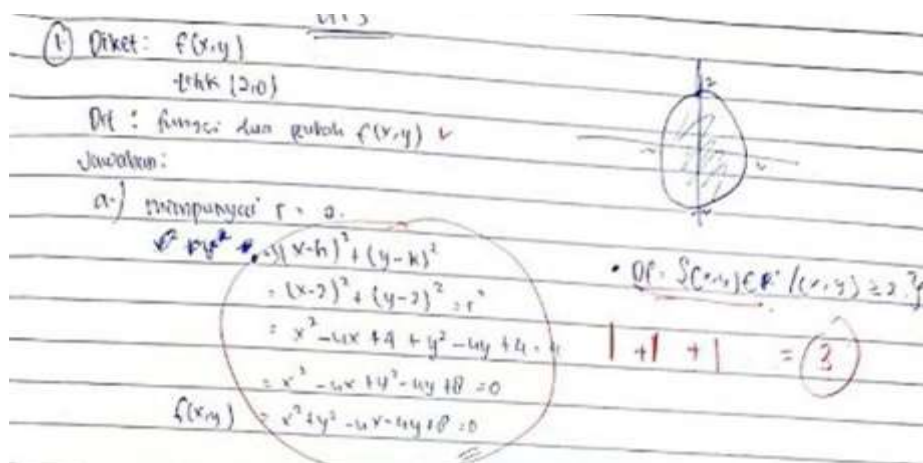 UTS
1. Diket: f(x,y)
titik (2,0)
Dit: fungsi dua peubah f(x,y)
Jawaban:
a.) mempunyai r = 2.
(x-h)² + (y-k)²
= (x-2)² + (y-2)² = r²
= x² - 4x + 4 + y² - 4y + 4 = 4
= x² - 4x + y² - 4y + 8 = 0
f(x,y) = x² + y² - 4x - 4y + 8 = 0
2
• DF = {(x,y) ∈ R² / (x,y) ≥ 2}
1 + 1 + 1 = 3